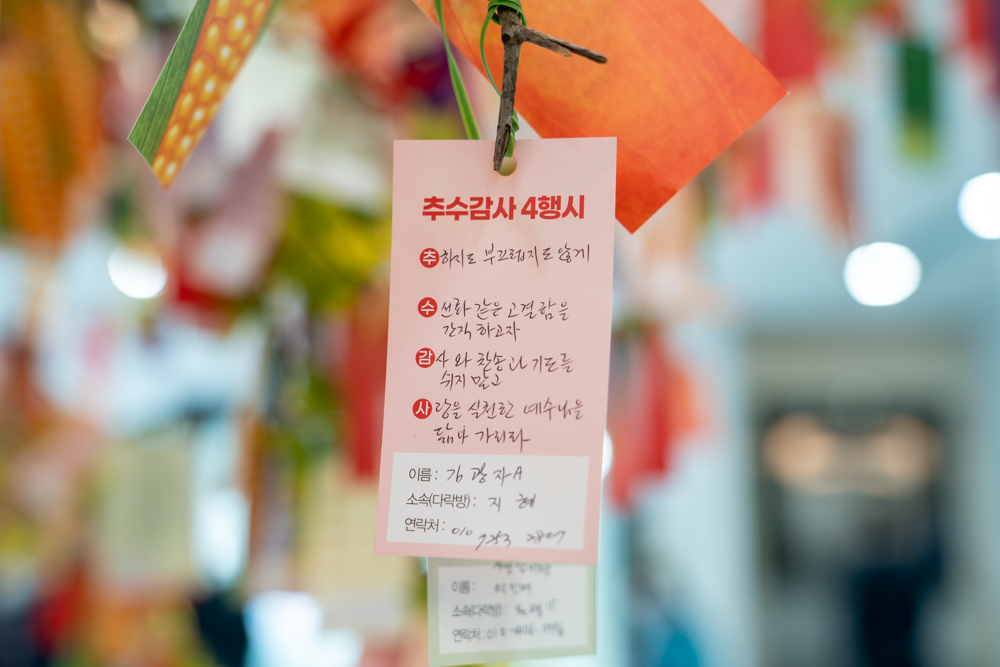 추수감사 4행시
추하지도 부끄럽지도 않게
수선화 같은 고결함을
간직 하고자
감사와 찬송과 기도를
쉬지 말고
사랑을 실천한 예수님을
닮아 가리라
이름: 김광자A
소속(다락방): 지혜
연락처: 010
이름:
소속(다락방):
연락처: 010